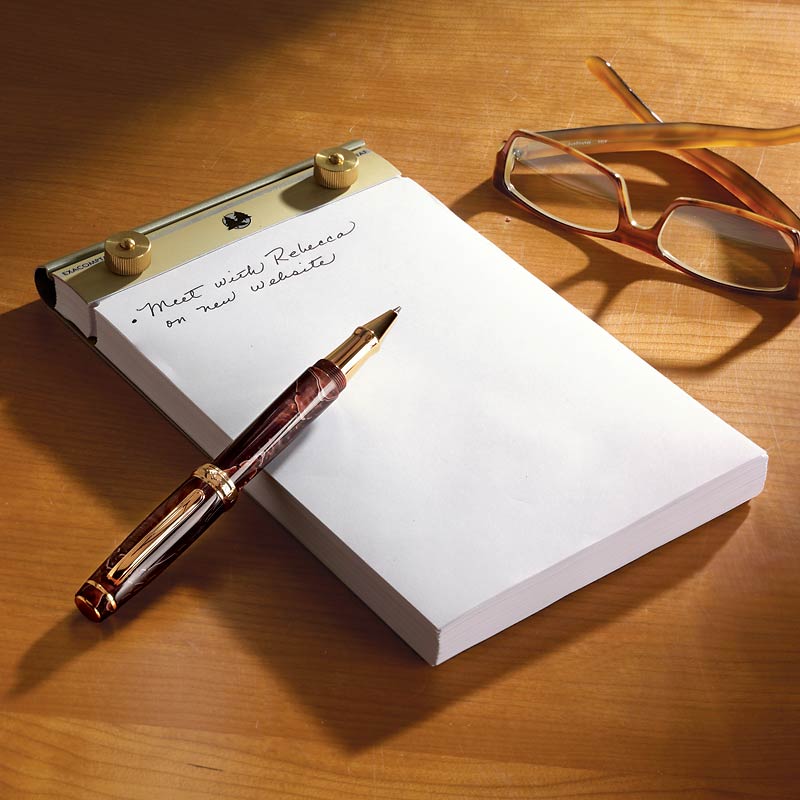 EXACOMPTA
• Meet with Rebecca
on new website